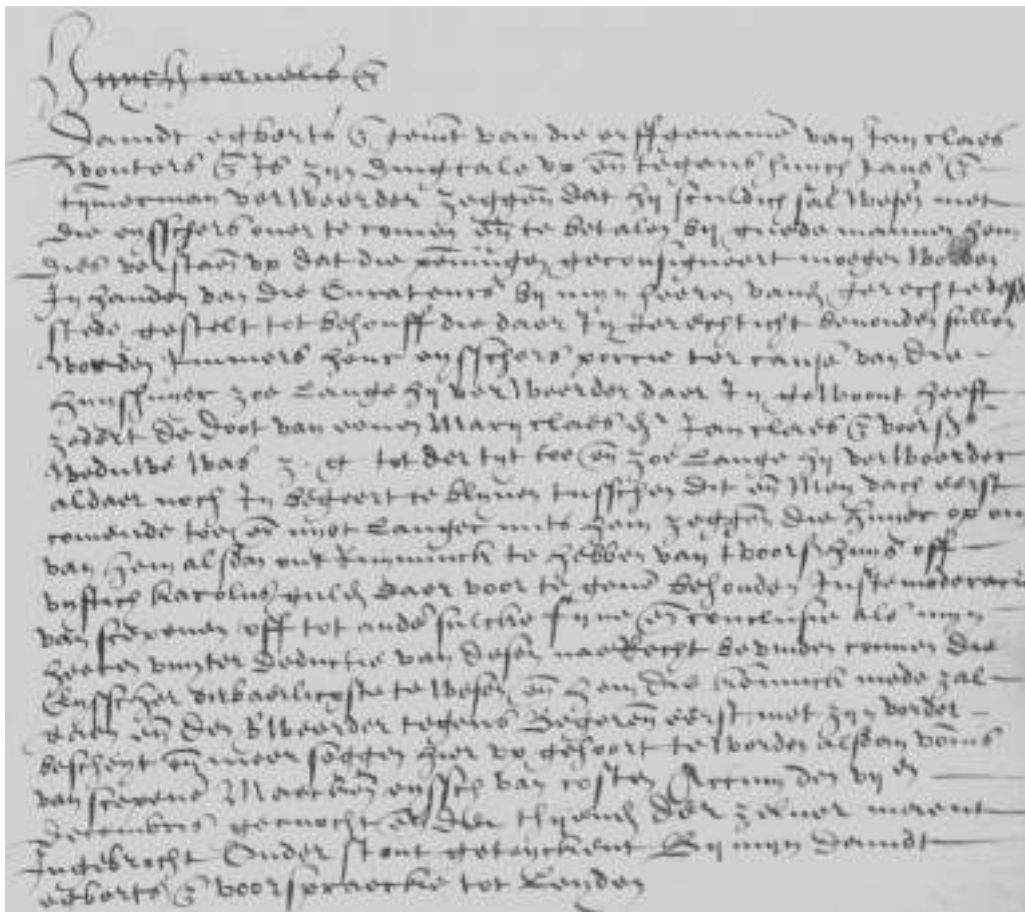 cornelis
Davidt egberts z tevt van die erffgenamē van Jan claes
wouters z is zyn dingtale vp eñ tegens huych Jans z
tymerman verweerder zeggeñ dat hij sculdich sal wesen met
die eysschers over te comen eñ te betalen bij goede mannen hem
dies verstaeñ vp dat die peñingen geconsigneert moegen worden
In handen van die Curateurs bij myn heeren vandē gerechte deser
stede gestelt tot behouff die daer In gerechticht bevonden sullen
worden Immers heur eysschers porcie ter causē van die
huyshuier zoe lange hij verweerder daer In gewoont heeft
zedert de doot van eenen Marij claes dr Jan claes z voorsz
weduwe was z. g tot der tyt toe eñ zoe lange hij verweerder
aldaer noch In begeert te bliven tusschen dit eñ Mey dach eerst
comende toe eñ niet langer mits hem zeggeñ die huier op om
van hem alsdan ontruimminck te hebben van tvoorsz huys off
vyftich karolus guldē daer voor te geuē behouden Juste moderacie
van scepenen off tot andē sulcke fijne eñ conclusie als myn
heeren vuyter deductie van desen nae Recht bevinden connen die
Eysscher oirbaerlicxste te wesen eñ hem die kennnick mede zal
eñ den Vweerder tegens Begereñ eerst met zyn vorder
bescheyt eñ meer seggen hier vp gehoort te worden alsdan voñis
van scepenē Maeckeñ eyssch van costen Actum den vij eñ
decembris gemocht eñ den der zelver maent
Ingebrocht Onder stont geteyckent Bij myn Davidt
egberts z voorspraecke tot Leyden